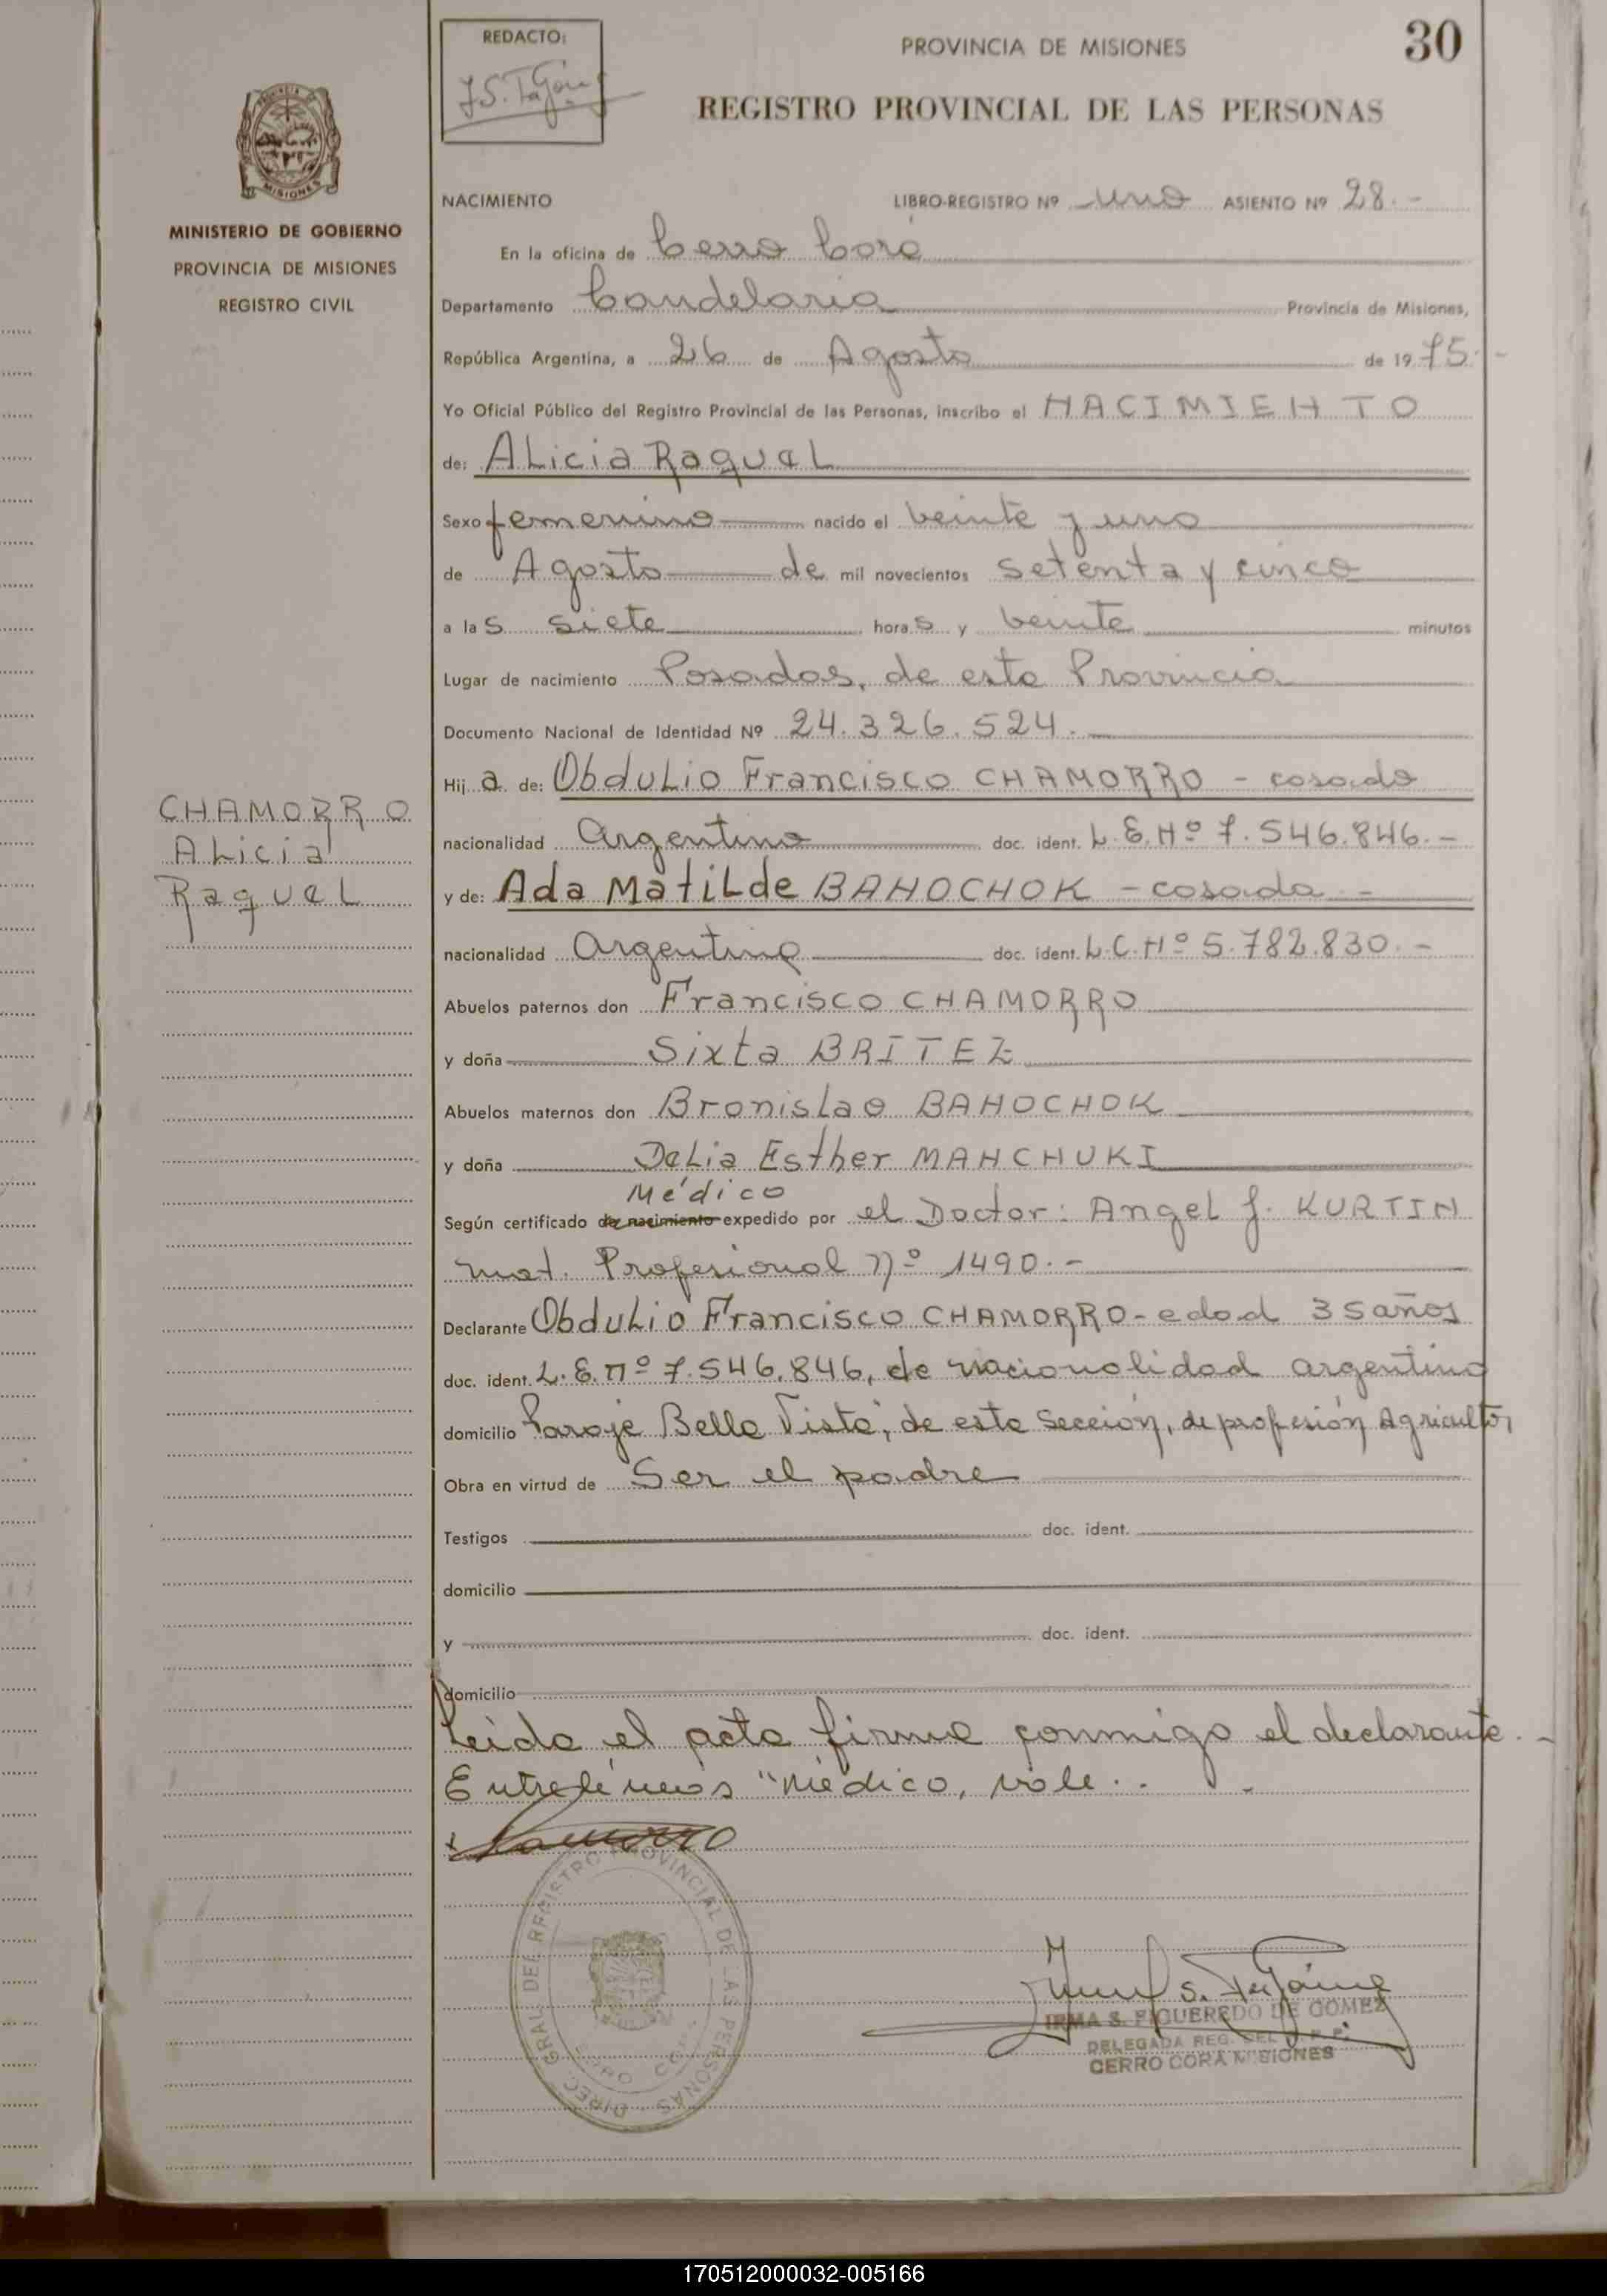 REDACTO:
PROVINCIA DE MISIONES
30
REGISTRO PROVINCIAL DE LAS PERSONAS
MINISTERIO DE GOBIERNO
PROVINCIA DE MISIONES
REGISTRO CIVIL
NACIMIENTO LIBRO-REGISTRO Nº uno ASIENTO Nº 28.-
En la oficina de Cerro Corá
Departamento Candelaria Provincia de Misiones,
República Argentina, a 26 de Agosto de 1975.-
Yo Oficial Público del Registro Provincial de las Personas, inscribo el NACIMIENTO
de: ALicia RaqueL
Sexo femenino nacido el veinte y uno
de Agosto de mil novecientos setenta y cinco
a las siete horas y veinte minutos
Lugar de nacimiento Posadas, de esta Provincia
Documento Nacional de Identidad Nº 24.326.524.
Hija de: ObduLio Francisco CHAMORRO - casado
CHAMORRO
ALicia
RaqueL
nacionalidad Argentino doc. ident. L.E.Nº 7.546.846.-
y de: Ada MatiLde BANOCHOK - casada.-
nacionalidad Argentina doc. ident. L.C.Nº 5.782.830.-
Abuelos paternos don Francisco CHAMORRO
y doña Sixta BRITEZ
Abuelos maternos don BronisLao BANOCHOK
y doña DeLia Esther MANCHUKI
Médico
Según certificado de nacimiento expedido por el Doctor: AngeL J. KURTIN
mat. Profesional nº 1490.-
Declarante ObduLio Francisco CHAMORRO - edad 35 años
doc. ident. L.E.nº 7.546.846, de nacionalidad argentino
domicilio Paraje Bella Vista, de esta Sección, de profesión Agricultor
Obra en virtud de Ser el padre
Testigos doc. ident.
domicilio
y doc. ident.
domicilio
Leída el acta firma conmigo el declarante.-
Entrelíneas "médico, vale..
DIREC. GRAL. DEL REGISTRO PROVINCIAL DE LAS PERSONAS
IRMA S. FIGUEREDO DE GOMEZ
DELEGADA REG.
CERRO CORA MISIONES
170512000032-005166